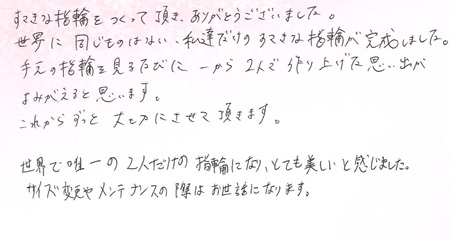 すてきな指輪をつくって頂き、ありがとうございました。
世界に同じものはない、私達だけのすてきな指輪が完成しました。
手元の指輪を見るたびに一から2人で作り上げた思い出が
よみがえると思います。
これからずっと大切にさせて頂きます。
世界で唯一の2人だけの指輪になり、とても美しいと感じました。
サイズ変更やメンテナンスの際はお世話になります。